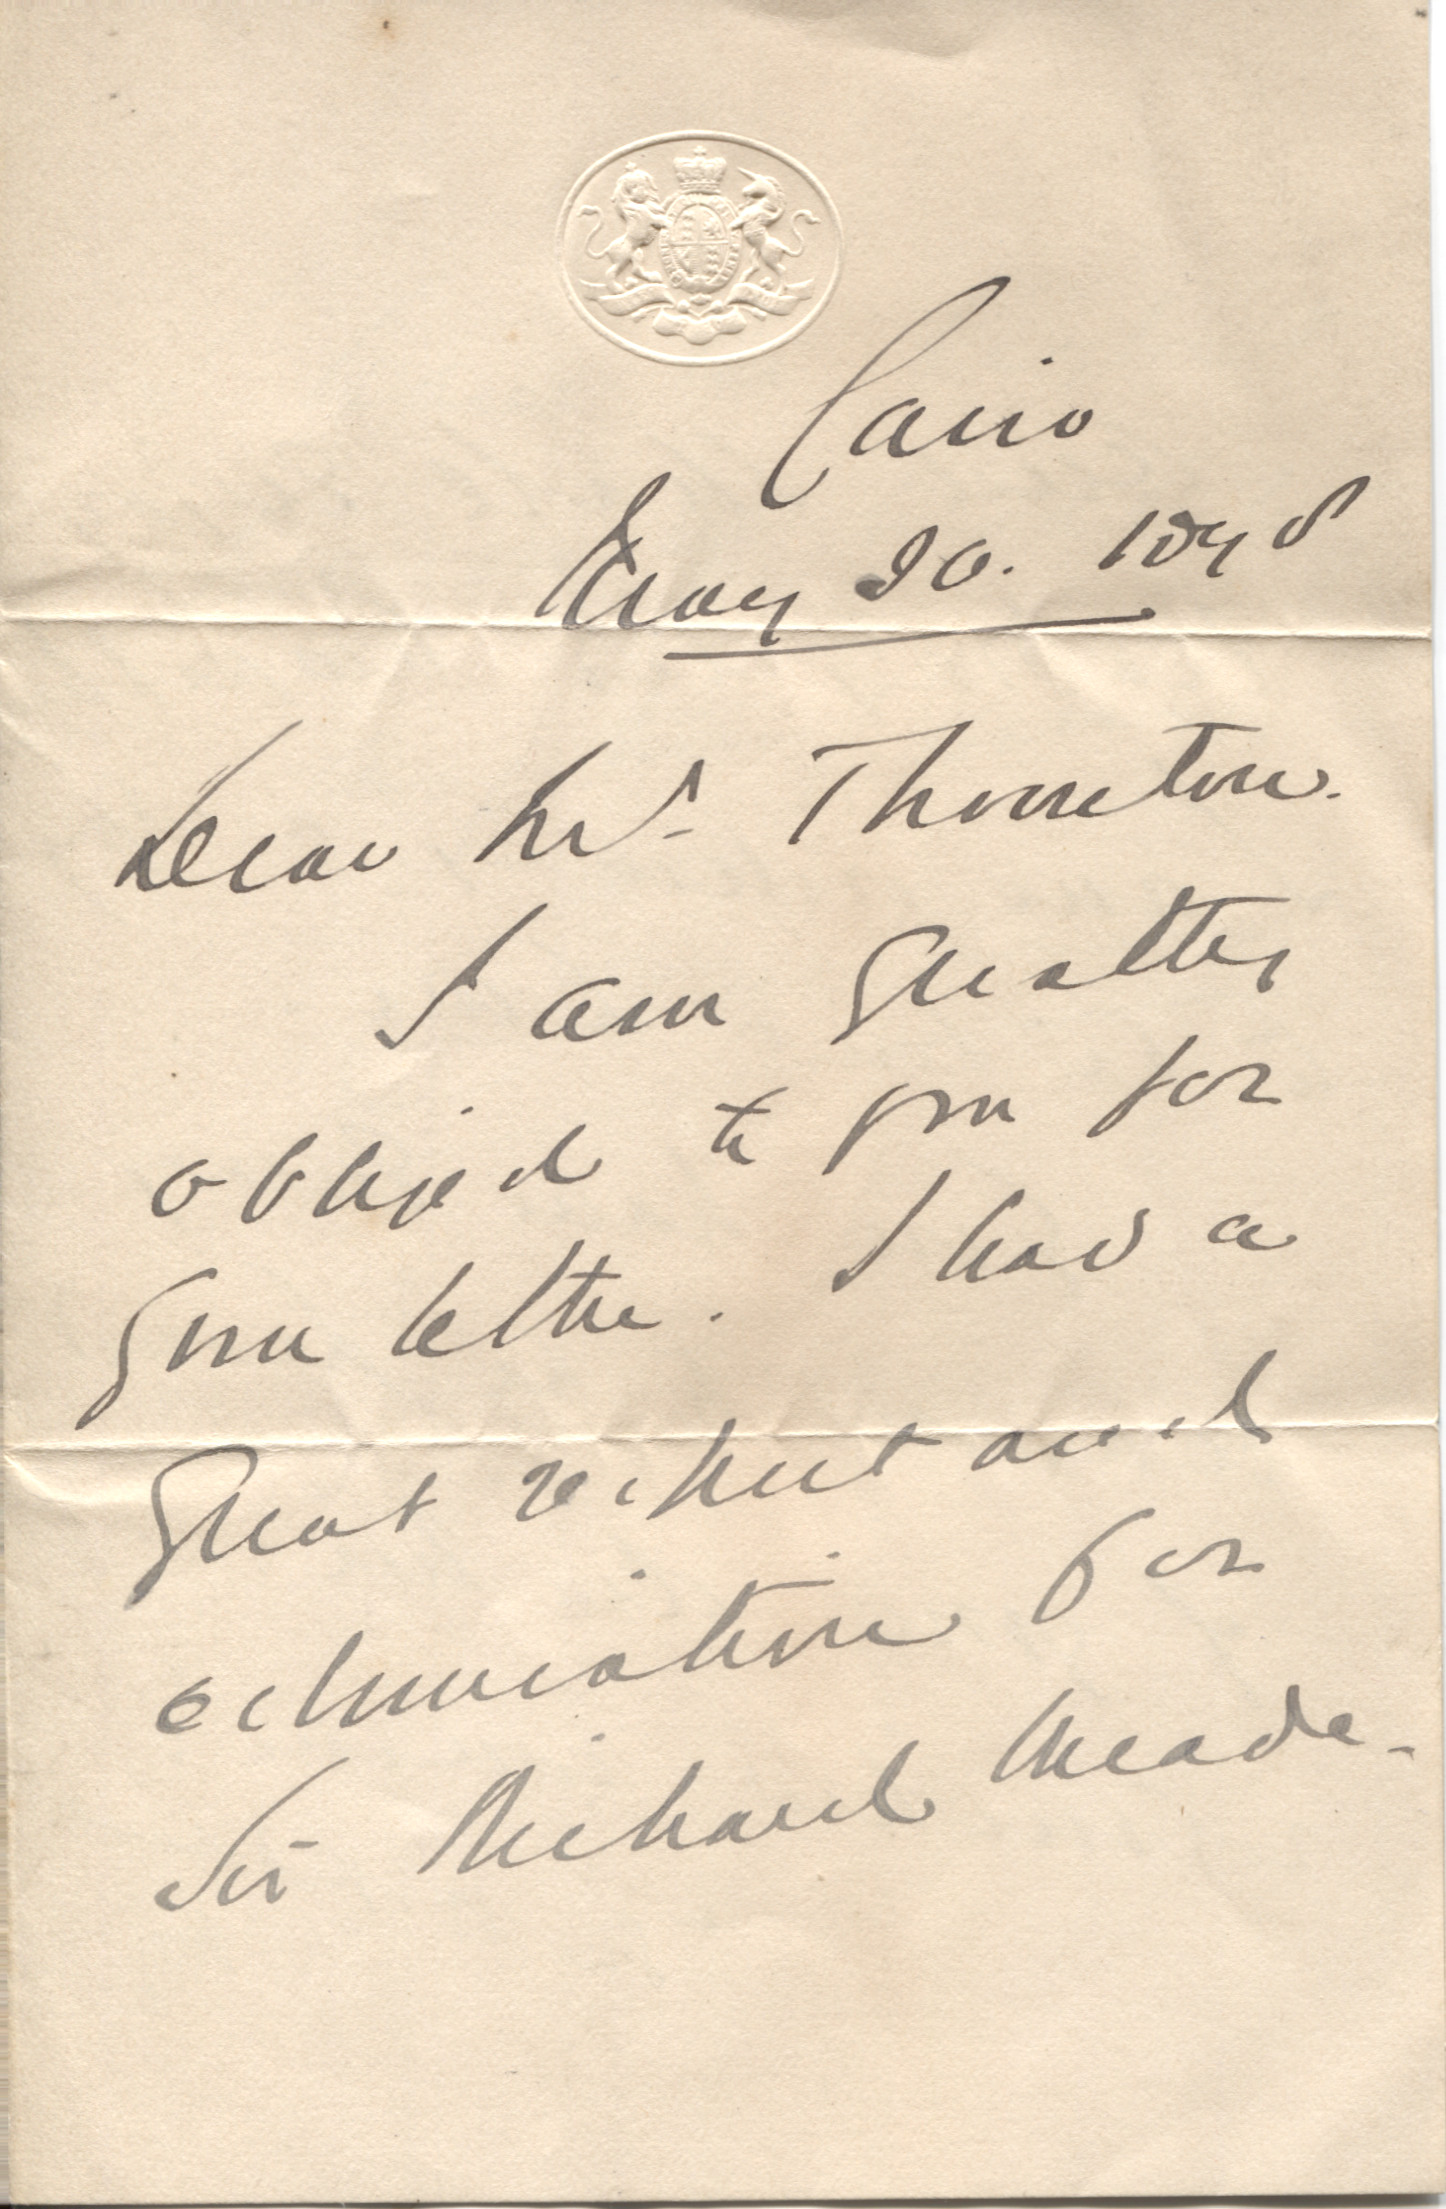 Cairo
May 20. 1898
Dear Mr. Thornton.
I am greatly
obliged to you for
your letter. I had a
great respect and
admiration for
Sir Richard Meade.